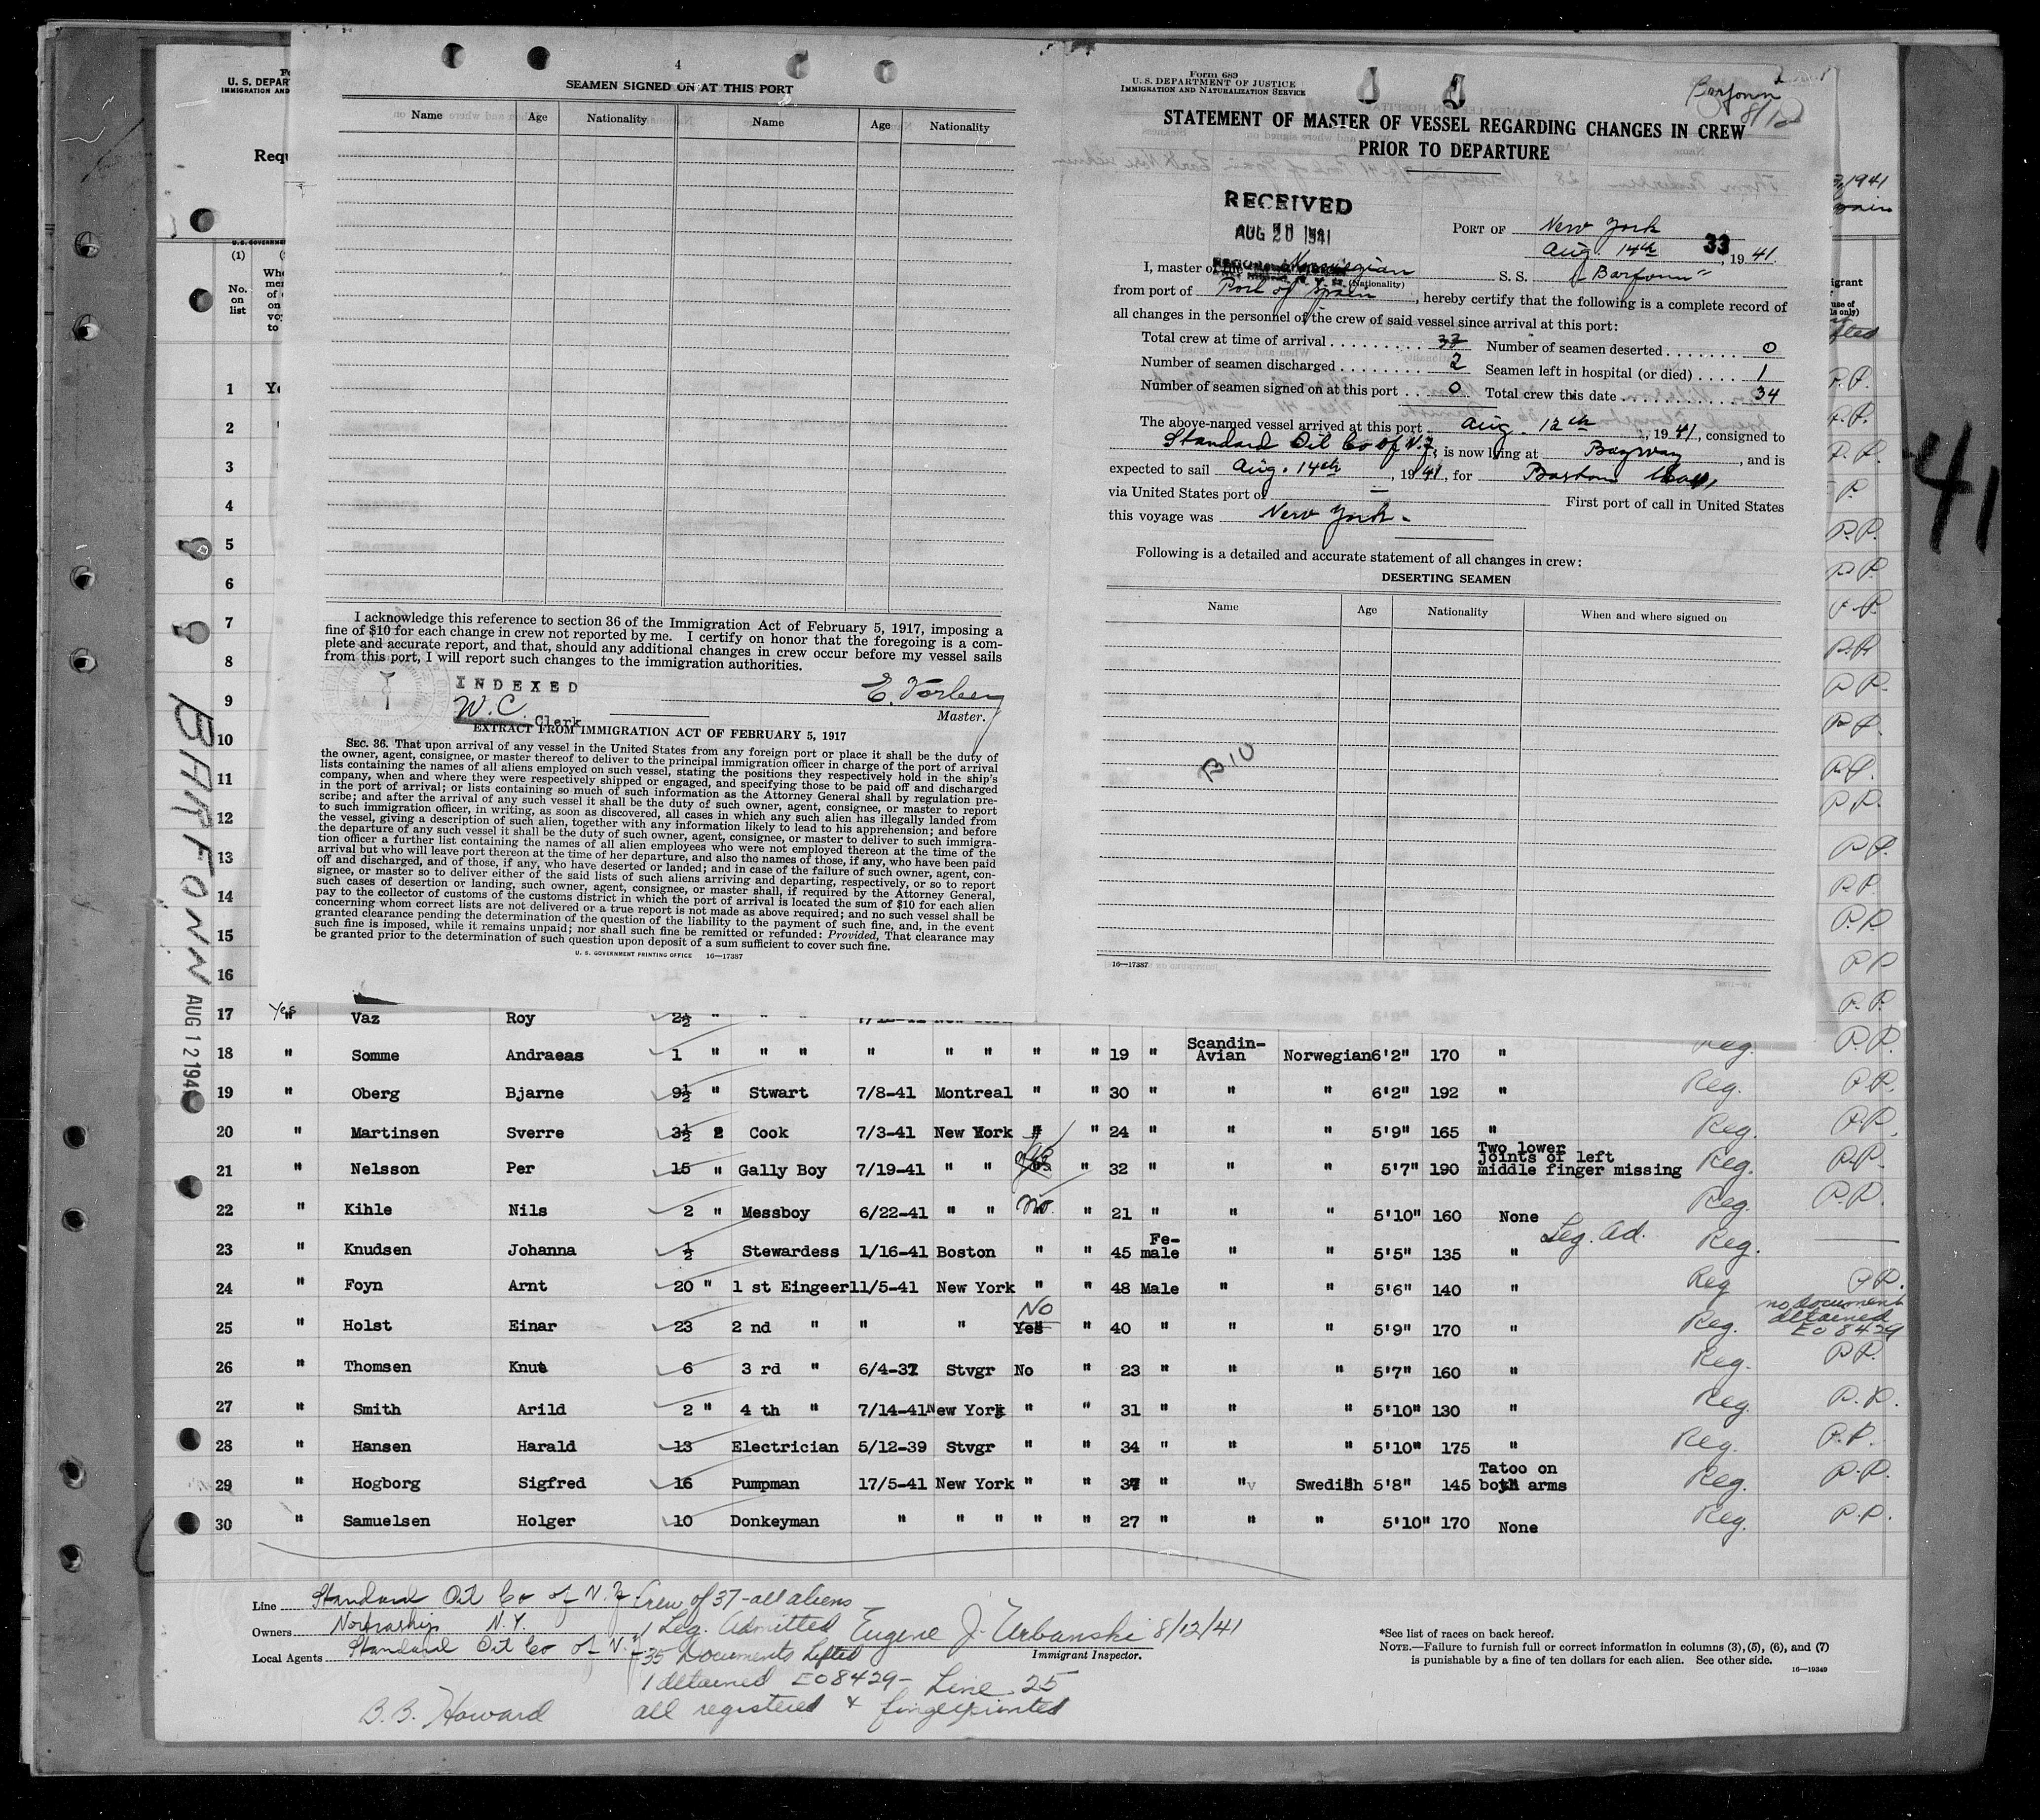 4
SEAMEN SIGNED ON AT THIS PORT
Name Age Nationality Name Age Nationality
I acknowledge this reference to section 36 of the Immigration Act of February 5, 1917, imposing a
fine of $10 for each change in crew not reported by me. I certify on honor that the foregoing is a com-
plete and accurate report, and that, should any additional changes in crew occur before my vessel sails
from this port, I will report such changes to the immigration authorities.
INDEXED
W.C. Clerk
E. Vorberg
Master.
EXTRACT FROM IMMIGRATION ACT OF FEBRUARY 5, 1917
SEC. 36. That upon arrival of any vessel in the United States from any foreign port or place it shall be the duty of
the owner, agent, consignee, or master thereof to deliver to the principal immigration officer in charge of the port of arrival
lists containing the names of all aliens employed on such vessel, stating the positions they respectively hold in the ship's
company, when and where they were respectively shipped or engaged, and specifying those to be paid off and discharged
in the port of arrival; or lists containing so much of such information as the Attorney General shall by regulation pre-
scribe; and after the arrival of any such vessel it shall be the duty of such owner, agent, consignee, or master to report
to such immigration officer, in writing, as soon as discovered, all cases in which any such alien has illegally landed from
the vessel, giving a description of such alien, together with any information likely to lead to his apprehension; and before
the departure of any such vessel it shall be the duty of such owner, agent, consignee, or master to deliver to such immigra-
tion officer a further list containing the names of all alien employees who were not employed thereon at the time of the
arrival but who will leave port thereon at the time of her departure, and also the names of those, if any, who have been paid
off and discharged, and of those, if any, who have deserted or landed; and in case of the failure of such owner, agent, con-
signee, or master so to deliver either of the said lists of such aliens arriving and departing, respectively, or so to report
such cases of desertion or landing, such owner, agent, consignee, or master shall, if required by the Attorney General,
pay to the collector of customs of the customs district in which the port of arrival is located the sum of $10 for each alien
concerning whom correct lists are not delivered or a true report is not made as above required; and no such vessel shall be
granted clearance pending the determination of the question of the liability to the payment of such fine, and, in the event
such fine is imposed, while it remains unpaid; nor shall such fine be remitted or refunded: Provided, That clearance may
be granted prior to the determination of such question upon deposit of a sum sufficient to cover such fine.
U. S. GOVERNMENT PRINTING OFFICE 16—17387
Form 689
U. S. DEPARTMENT OF JUSTICE
IMMIGRATION AND NATURALIZATION SERVICE
Barfonn
8/12
STATEMENT OF MASTER OF VESSEL REGARDING CHANGES IN CREW
PRIOR TO DEPARTURE
RECEIVED
AUG 20 1941
PORT OF New York
Aug. 14th 33, 1941
I, master of the Norwegian (Nationality) S. S. "Barfonn"
from port of Port of Spain, hereby certify that the following is a complete record of
all changes in the personnel of the crew of said vessel since arrival at this port:
Total crew at time of arrival 37 Number of seamen deserted 0
Number of seamen discharged 2 Seamen left in hospital (or died) 1
Number of seamen signed on at this port 0 Total crew this date 34
The above-named vessel arrived at this port Aug. 12th, 1941, consigned to
Standard Oil Co of N.J., is now lying at Bayway, and is
expected to sail Aug. 14th, 1941, for Boston Mass,
via United States port of — First port of call in United States
this voyage was New York.
Following is a detailed and accurate statement of all changes in crew:
DESERTING SEAMEN
Name Age Nationality When and where signed on
B10
16—17387
41
BARFONN
AUG 12 194
U. S. DEPAR
IMMIGRATION AND
Requ
(1)
No. on list
1 Ye
2
3
4
5
6
7
8
9
10
11
12
13
14
15
16
17 Yes " Vaz Roy 2½ " " "
18 " Somme Andraeas 1 " " " " " " " " 19 " Scandin-Avian Norwegian 6'2" 170 " Reg. P.P.
19 " Oberg Bjarne 9½ " Stwart 7/8-41 Montreal " " 30 " " " 6'2" 192 " Reg. P.P.
20 " Martinsen Sverre 3½ 2 Cook 7/3-41 New York # " 24 " " " 5'9" 165 " Reg. P.P.
21 " Nelsson Per 15 " Gally Boy 7/19-41 " " Yes " 32 " " " 5'7" 190 Two lower joints of left middle finger missing Reg. P.P.
22 " Kihle Nils 2 " Messboy 6/22-41 " " No. " 21 " " " 5'10" 160 None Reg. P.P.
23 " Knudsen Johanna ½ Stewardess 1/16-41 Boston " " 45 Fe-male " " 5'5" 135 " Leg. Ad. Reg.
24 " Foyn Arnt 20 " 1 st Eingeer 11/5-41 New York " " 48 Male " " 5'6" 140 " Reg P.P.
25 " Holst Einar 23 2 nd " " " No Yes " 40 " " " 5'9" 170 " Reg. no document detained EO 8429
26 " Thomsen Knut 6 3 rd " 6/4-37 Stvgr No " 23 " " " 5'7" 160 " Reg. P.P.
27 " Smith Arild 2 " 4 th " 7/14-41 New York " " 31 " " " 5'10" 130 " Reg. P.P.
28 " Hansen Harald 13 Electrician 5/12-39 Stvgr " " 34 " " " 5'10" 175 " Reg. P.P.
29 " Hogborg Sigfred 16 Pumpman 17/5-41 New York " " 37 " " v Swedish 5'8" 145 Tatoo on both arms Reg. P.P.
30 " Samuelsen Holger 10 Donkeyman " " " " " 27 " " " 5'10" 170 None Reg. P.P.
Line Standard Oil Co of N.J.
Owners Nortraship N.Y.
Local Agents Standard Oil Co of N.J.
Crew of 37 - all aliens
1 Leg. Admitted
35 Documents Lifted
1 detained EO8429 - Line 25
all registered & fingerprinted
B.B. Howard
Eugene J. Urbanski 8/12/41
Immigrant Inspector.
*See list of races on back hereof.
NOTE.—Failure to furnish full or correct information in columns (3), (5), (6), and (7)
is punishable by a fine of ten dollars for each alien. See other side.
16—19349